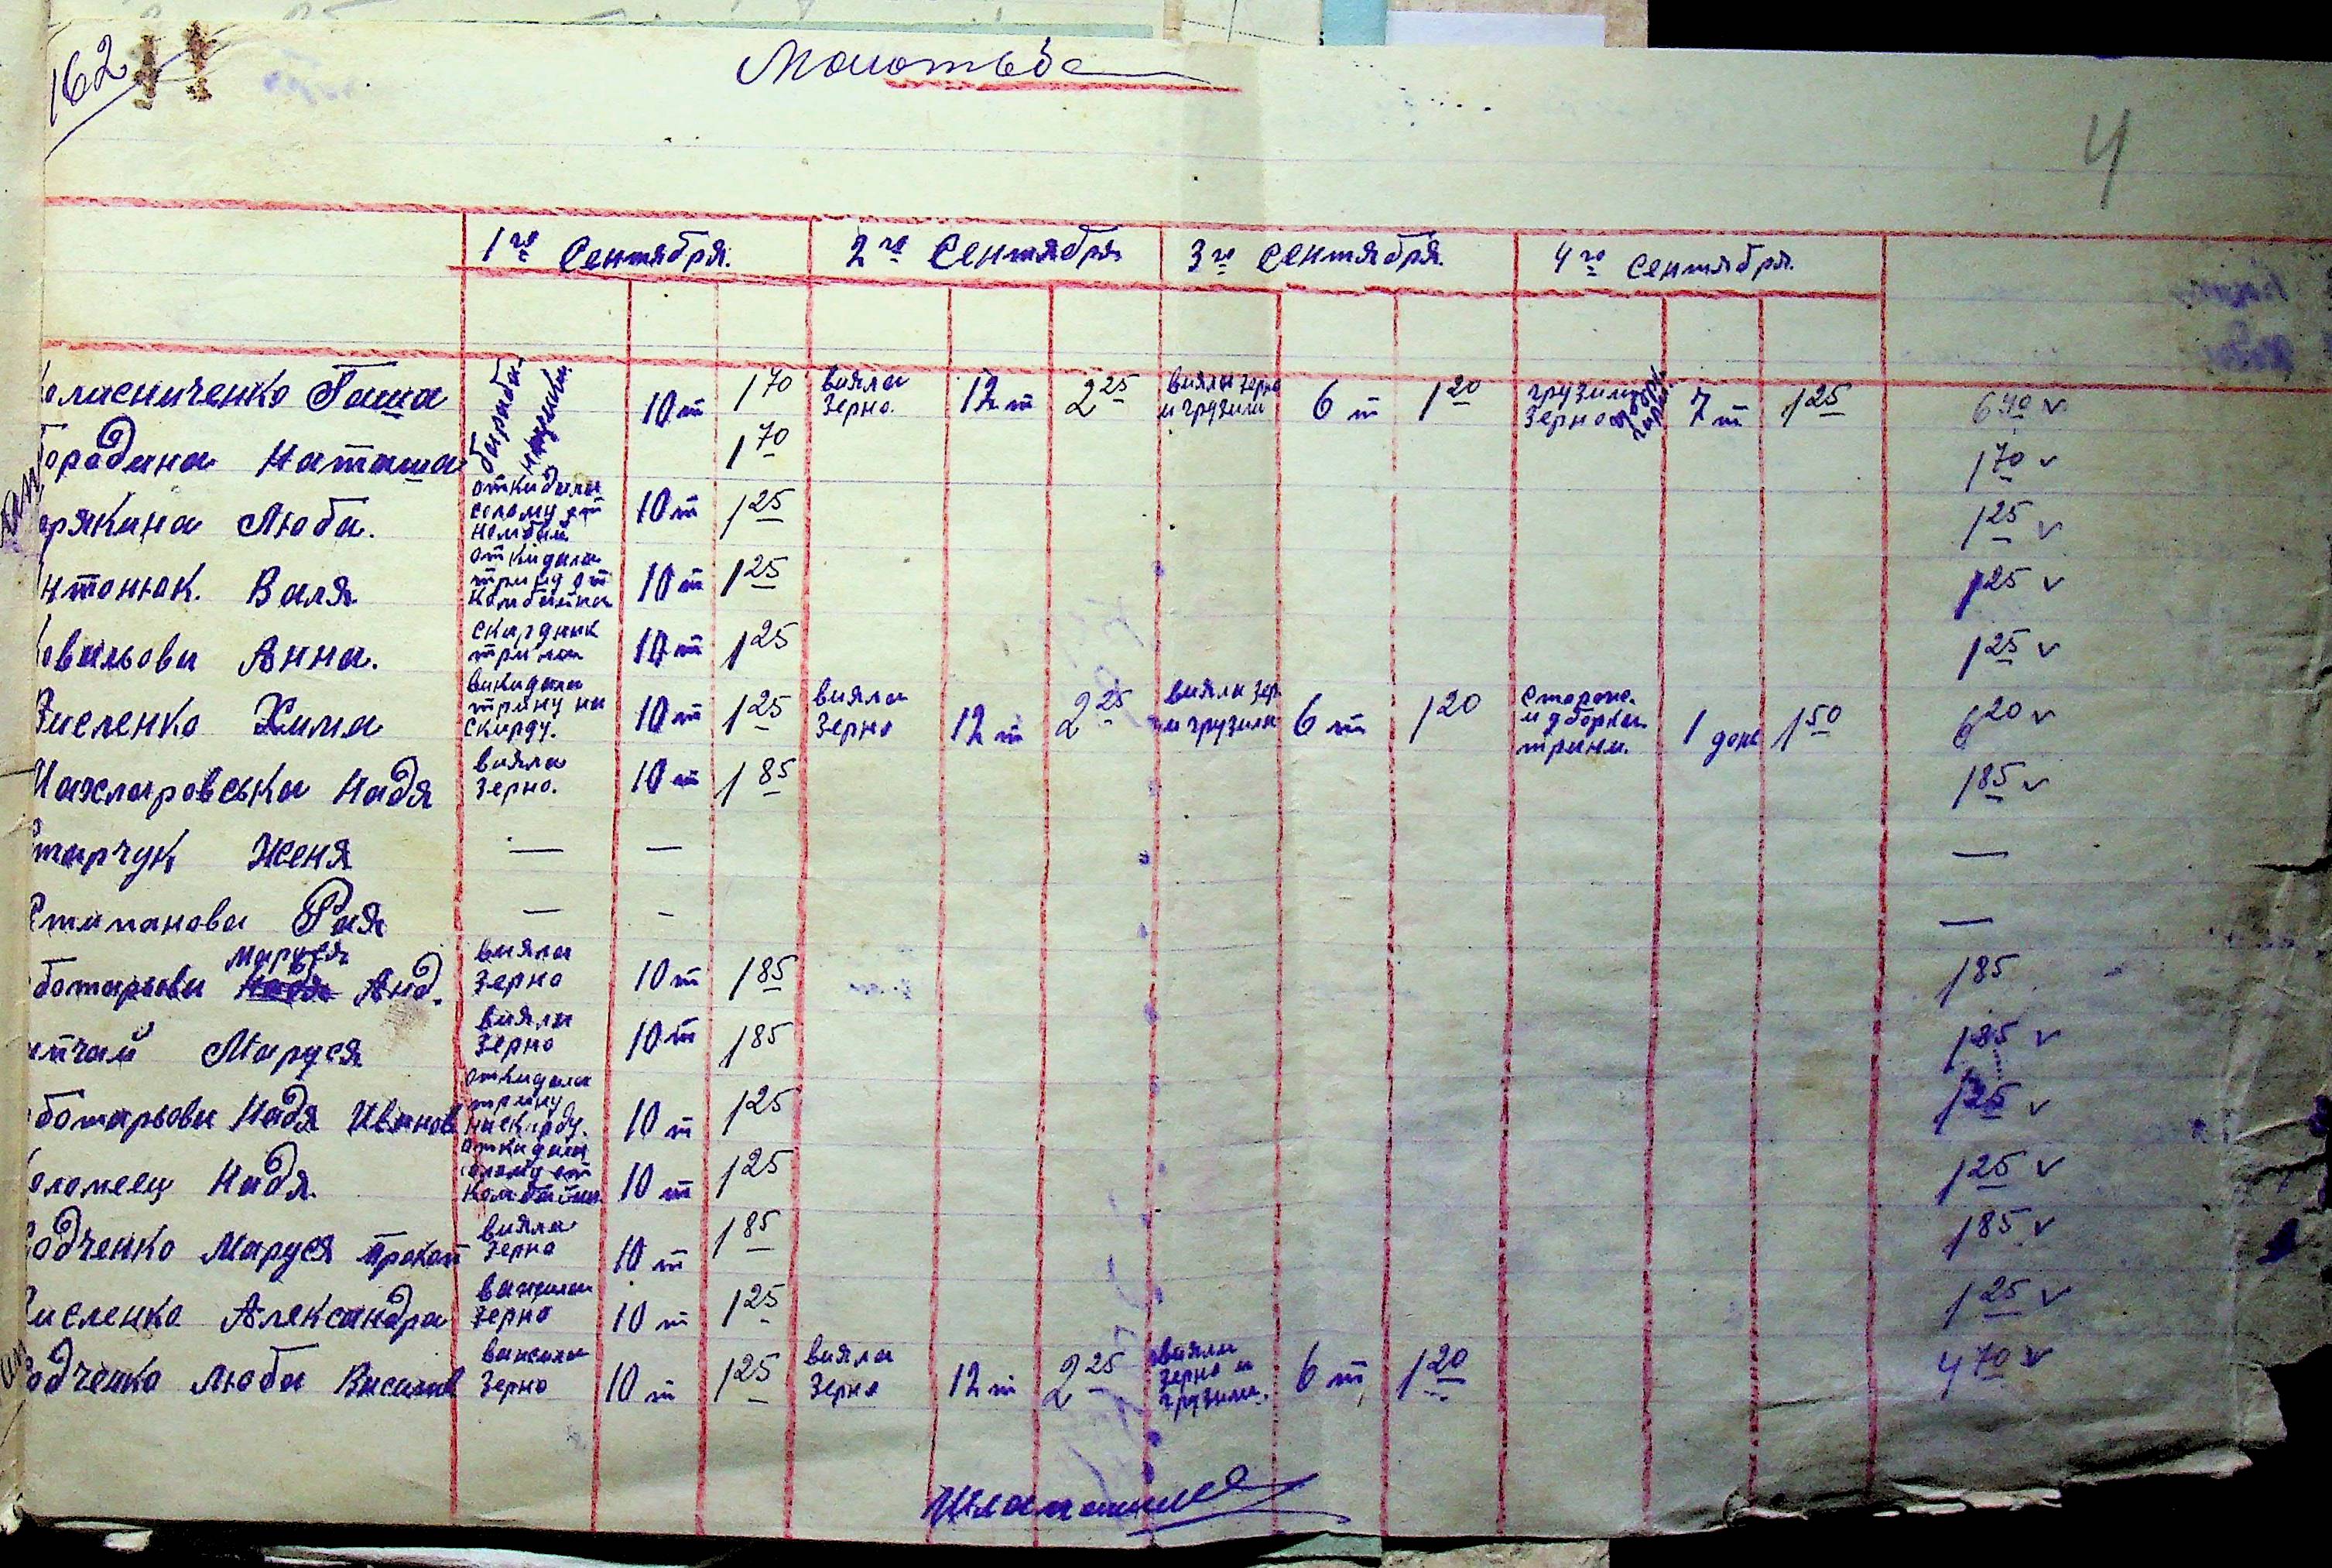 162
Молотьба
4
1го Сентября. 2го Сентября 3го Сентября 4го Сентября.
олисниченко Гаша барабан 10 т 1 70 вияла зерно. 12 т 2 25 вияли зерно и грузили 6 т 1 20 грузили зерно 7 т 1 25 6 40 v
ородина Наташа 1 70 1 70 v
рякина Люба. откидала солому от 10 т 1 25 1 25 v
нтонюк. Валя откидала трину от комбайна 10 т 1 25 1 25 v
Анна. скирдник 10 т 1 25 1 25 v
исленко Хима викидала трину на скирду. 10 т 1 25 вияла зерно 12 т 2 25 вияли зер. и грузили 6 т 1 20 сторож. и уборка трини. 1 день 1 50 6 20 v
Надя вияла зерно. 10 т 1 85 1 85 v
тарчук Женя — — —
Стипанова Рая — - —
Маруся
ботарьова Надя Анд. вияла зерно 10 т 1 85 1 85
Маруся вияли зерно 10 т 1 85 1 85 v
ботарьова Надя Иванов откидала трину на скирду. 10 т 1 25 1 25 v
оломеец Надя. откидала солому от комбайна 10 т 1 25 1 25 v
одченко Маруся Прокоп вияла зерно 10 т 1 85 1 85 v
исленко Александра зерно 10 т 1 25 1 25 v
одченко Люба зерно 10 т 1 25 вияла зерно 12 т 2 25 вияли зерно и грузили. 6 т 1 20 4 70 v